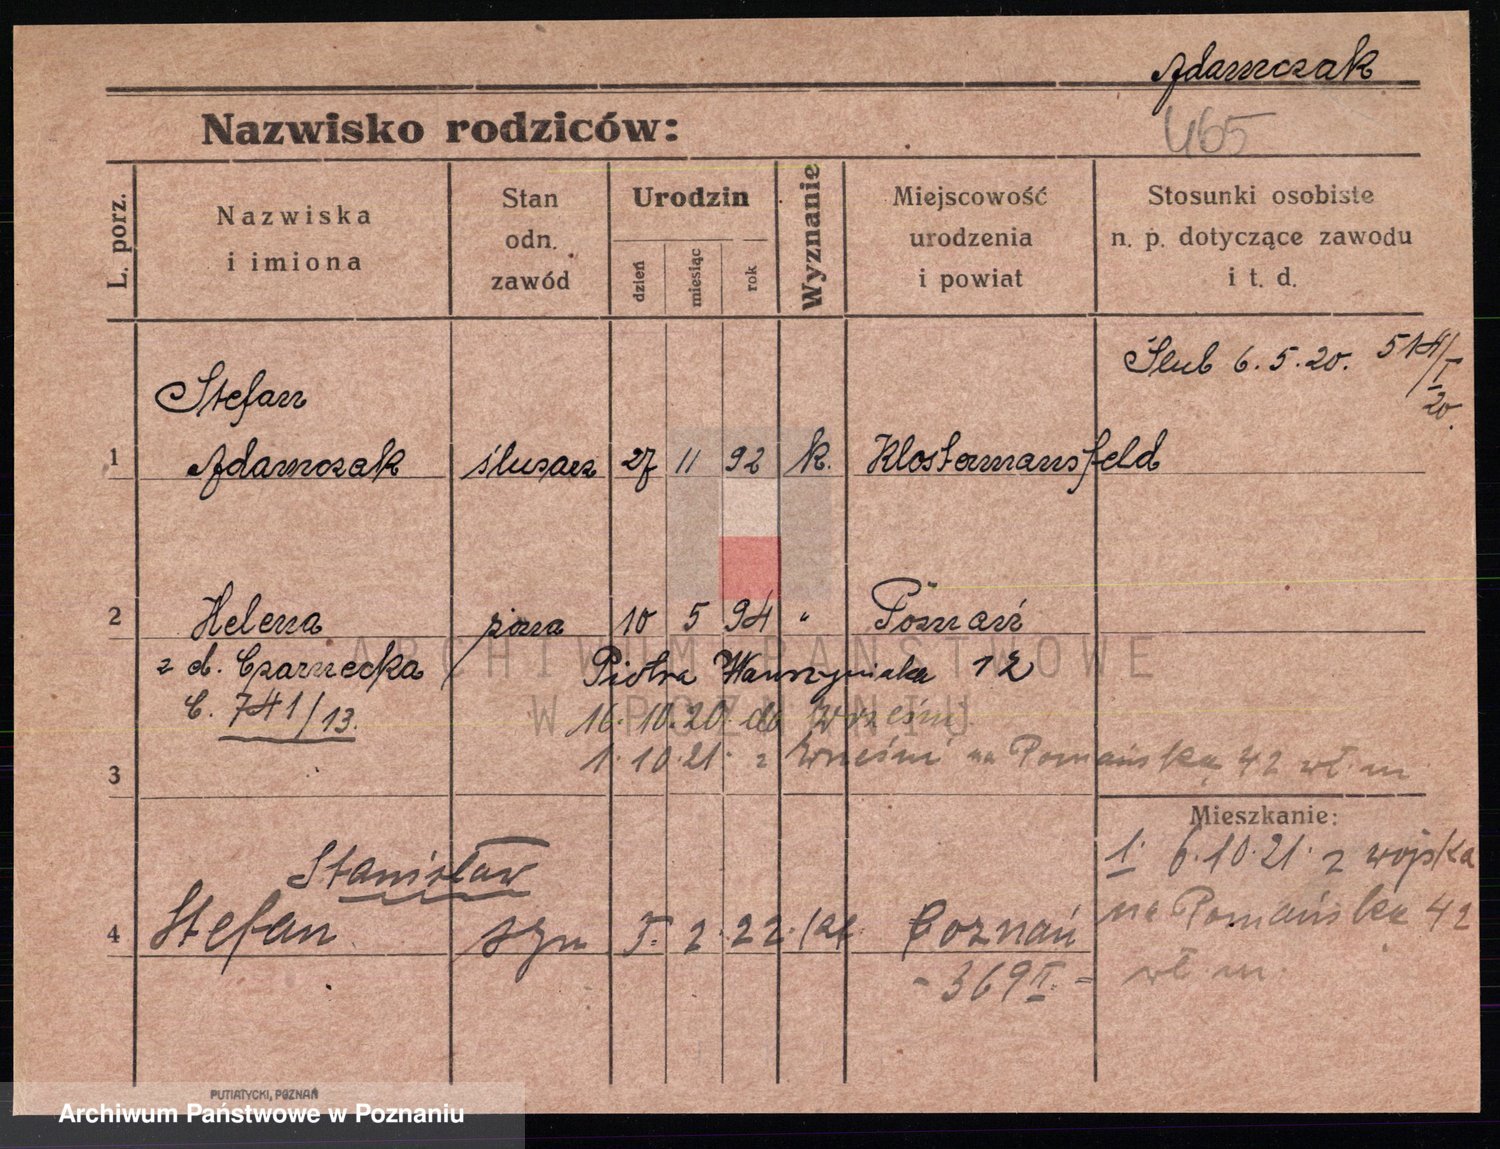 Adamczak
Nazwisko rodziców:
465
L. porz.
Nazwiska
i imiona
Stan
odn.
zawód
Urodzin
dzień
miesiąc
rok
Wyznanie
Miejscowość
urodzenia
i powiat
Stosunki osobiste
n. p. dotyczące zawodu
i t. d.
Ślub 6.5.20. 514/I
20.
Stefan
1 Adamczak ślusarz 27 11 92 k. Klostermansfeld
2 Helena żona 10 5 94 " Poznań
z d. Czarnecka Piotra Wawrzyniaka 12
C. 741/13. 16.10.20 do Wrześni
1.10.21. z Wrześni na Poznańską 42 wł. m
3
Mieszkanie:
1. 6.10.21. z wojska
na Poznańska 42
wł. m.
Stanisław
4 Stefan syn 5. 2. 22. kat. Poznań
- 369 II. -
PUTIATYCKI, POZNAŃ
ARCHIWUM PAŃSTWOWE
W POZNANIU
Archiwum Państwowe w Poznaniu